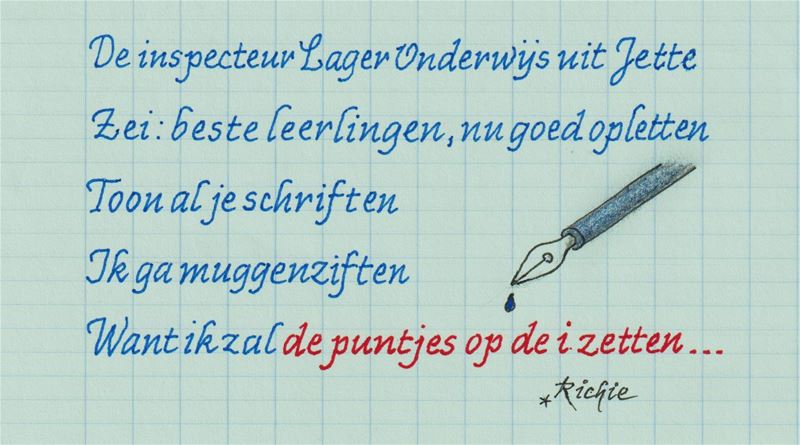 De inspecteur Lager Onderwijs uit Jette
Zei: beste leerlingen, nu goed opletten
Toon al je schriften
Ik ga muggenziften
Want ik zal de puntjes op de i zetten...
*Richie